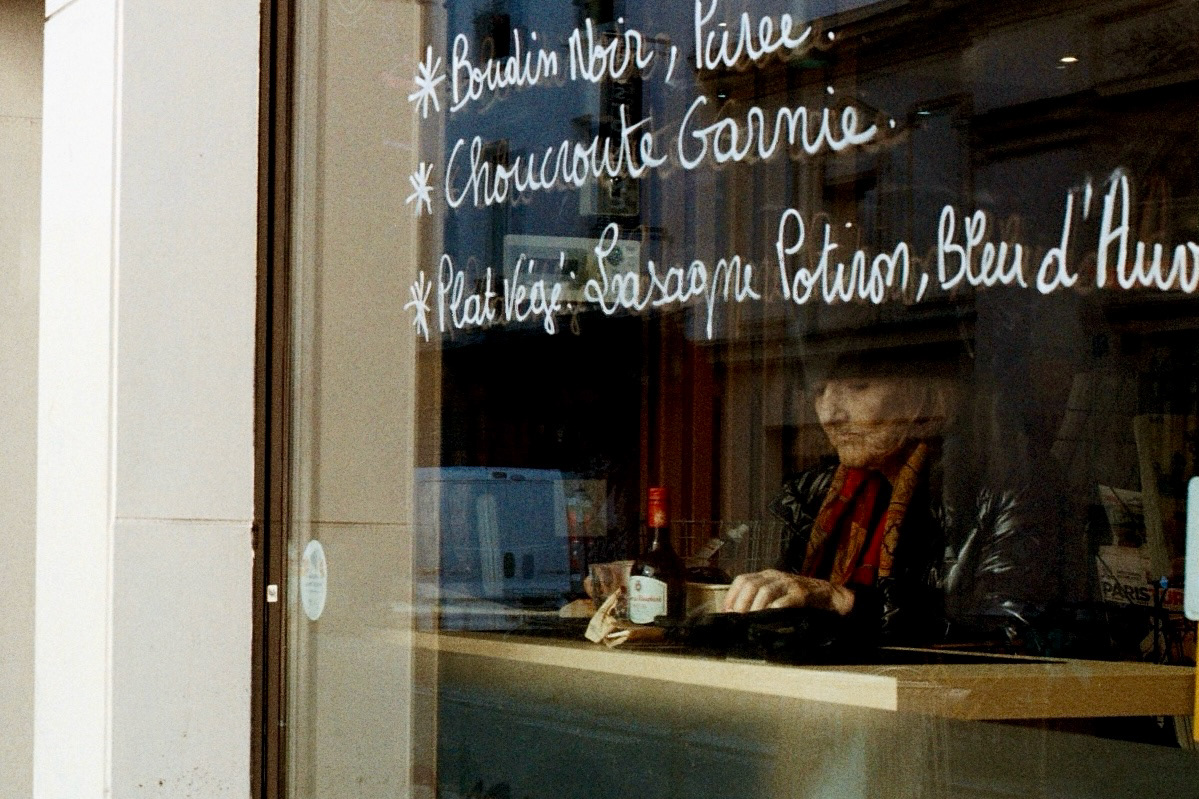 * Boudin Noir, Purée.
* Choucroute Garnie.
* Plat Végé: Lasagne Potiron, Bleu d'Auv
PARIS